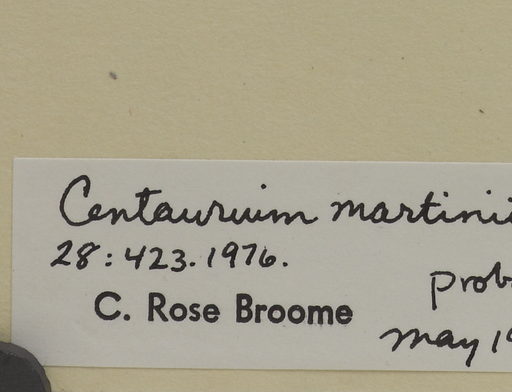 Centaurium martinii
28: 423. 1976.
prob
C. Rose Broome
May 19